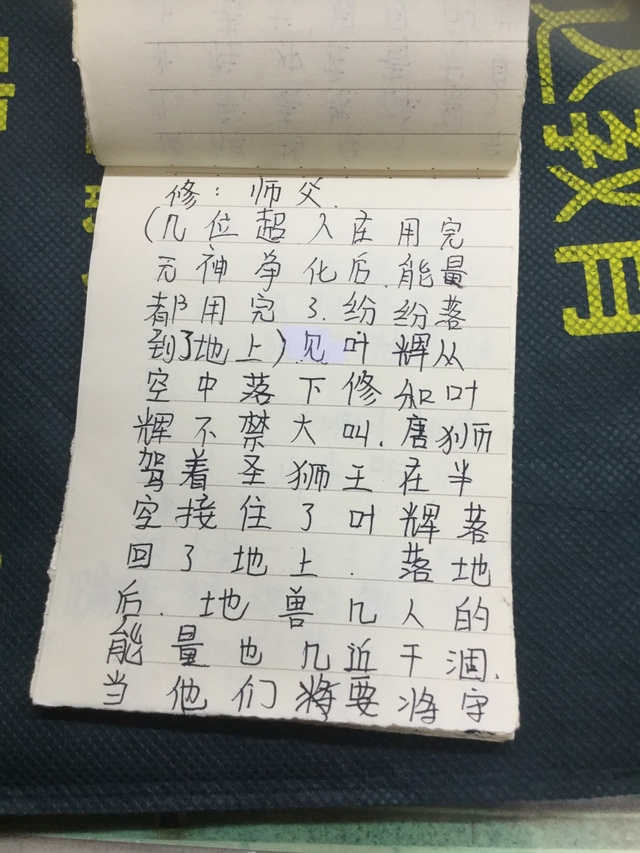 修：师父.
(几位超人在用完
元神净化后.能量
都用完了.纷纷落
到了地上)见叶辉从
空中落下修和叶
辉不禁大叫.唐狮
驾着圣狮王在半
空接住了叶辉落
回了地上.落地
后.地兽几人的
能量也几近干涸.
当他们将要将守
教育